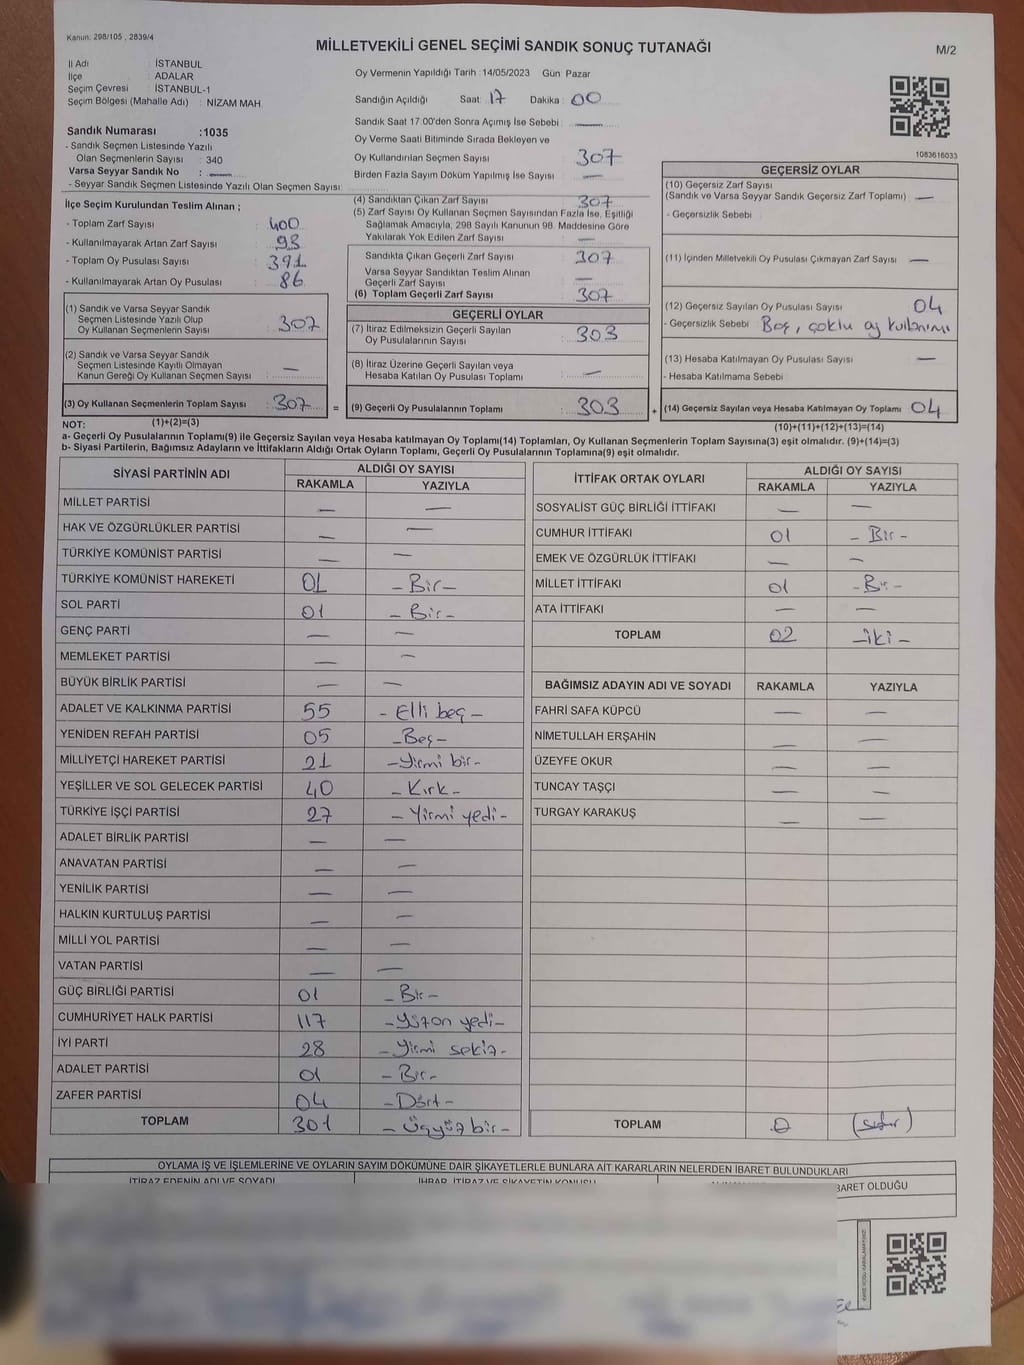 Kanun: 298/105 , 2839/4
MİLLETVEKİLİ GENEL SEÇİMİ SANDIK SONUÇ TUTANAĞI
M/2
İl Adı : İSTANBUL
İlçe : ADALAR
Seçim Çevresi : İSTANBUL-1
Seçim Bölgesi (Mahalle Adı) : NİZAM MAH.
Oy Vermenin Yapıldığı Tarih : 14/05/2023 Gün Pazar
Sandığın Açıldığı Saat: 17 Dakika : 00
Sandık Saat 17:00'den Sonra Açımış İse Sebebi : —
Sandık Numarası :1035
- Sandık Seçmen Listesinde Yazılı
Olan Seçmenlerin Sayısı : 340
Varsa Seyyar Sandık No : —
- Seyyar Sandık Seçmen Listesinde Yazılı Olan Seçmen Sayısı:
Oy Verme Saati Bitiminde Sırada Bekleyen ve
Oy Kullandırılan Seçmen Sayısı 307
Birden Fazla Sayım Döküm Yapılmış İse Sayısı —
1083616033
İlçe Seçim Kurulundan Teslim Alınan ;
- Toplam Zarf Sayısı : 400
- Kullanılmayarak Artan Zarf Sayısı : 93
- Toplam Oy Pusulası Sayısı : 391
- Kullanılmayarak Artan Oy Pusulası : 86
(1) Sandık ve Varsa Seyyar Sandık
Seçmen Listesinde Yazılı Olup
Oy Kullanan Seçmenlerin Sayısı : 307
(2) Sandık ve Varsa Seyyar Sandık
Seçmen Listesinde Kayıtlı Olmayan
Kanun Gereği Oy Kullanan Seçmen Sayısı : —
(3) Oy Kullanan Seçmenlerin Toplam Sayısı : 307
(4) Sandıktan Çıkan Zarf Sayısı : 307
(5) Zarf Sayısı Oy Kullanan Seçmen Sayısından Fazla İse, Eşitliği
Sağlamak Amacıyla, 298 Sayılı Kanunun 98. Maddesine Göre
Yakılarak Yok Edilen Zarf Sayısı : —
Sandıkta Çıkan Geçerli Zarf Sayısı : 307
Varsa Seyyar Sandıktan Teslim Alınan
Geçerli Zarf Sayısı : —
(6) Toplam Geçerli Zarf Sayısı : 307
GEÇERLİ OYLAR
(7) İtiraz Edilmeksizin Geçerli Sayılan
Oy Pusulalarının Sayısı : 303
(8) İtiraz Üzerine Geçerli Sayılan veya
Hesaba Katılan Oy Pusulası Toplamı : —
= (9) Geçerli Oy Pusulalarının Toplamı : 303
GEÇERSİZ OYLAR
(10) Geçersiz Zarf Sayısı
(Sandık ve Varsa Seyyar Sandık Geçersiz Zarf Toplamı) —
- Geçersizlik Sebebi :
(11) İçinden Milletvekili Oy Pusulası Çıkmayan Zarf Sayısı —
(12) Geçersiz Sayılan Oy Pusulası Sayısı : 04
- Geçersizlik Sebebi : Boş, çoklu oy kullanımı
(13) Hesaba Katılmayan Oy Pusulası Sayısı : —
- Hesaba Katılmama Sebebi :
+ (14) Geçersiz Sayılan veya Hesaba Katılmayan Oy Toplamı 04
NOT: (1)+(2)=(3)
(10)+(11)+(12)+(13)=(14)
a- Geçerli Oy Pusulalarının Toplamı(9) ile Geçersiz Sayılan veya Hesaba katılmayan Oy Toplamı(14) Toplamları, Oy Kullanan Seçmenlerin Toplam Sayısına(3) eşit olmalıdır. (9)+(14)=(3)
b- Siyasi Partilerin, Bağımsız Adayların ve İttifakların Aldığı Ortak Oyların Toplamı, Geçerli Oy Pusulalarının Toplamına(9) eşit olmalıdır.
SİYASİ PARTİNİN ADI ALDIĞI OY SAYISI
RAKAMLA YAZIYLA
MİLLET PARTİSİ — —
HAK VE ÖZGÜRLÜKLER PARTİSİ — —
TÜRKİYE KOMÜNİST PARTİSİ — —
TÜRKİYE KOMÜNİST HAREKETİ 01 -Bir-
SOL PARTİ 01 -Bir-
GENÇ PARTİ — —
MEMLEKET PARTİSİ — —
BÜYÜK BİRLİK PARTİSİ — —
ADALET VE KALKINMA PARTİSİ 55 - Elli beş -
YENİDEN REFAH PARTİSİ 05 -Beş-
MİLLİYETÇİ HAREKET PARTİSİ 21 -Yirmi bir-
YEŞİLLER VE SOL GELECEK PARTİSİ 40 - Kırk-
TÜRKİYE İŞÇİ PARTİSİ 27 - Yirmi yedi-
ADALET BİRLİK PARTİSİ — —
ANAVATAN PARTİSİ — —
YENİLİK PARTİSİ — —
HALKIN KURTULUŞ PARTİSİ — —
MİLLİ YOL PARTİSİ — —
VATAN PARTİSİ — —
GÜÇ BİRLİĞİ PARTİSİ 01 - Bir -
CUMHURİYET HALK PARTİSİ 117 -Yüzon yedi-
İYİ PARTİ 28 - Yirmi sekiz-
ADALET PARTİSİ 01 - Bir-
ZAFER PARTİSİ 04 -Dört-
TOPLAM 301 - Üçyüz bir-
İTTİFAK ORTAK OYLARI ALDIĞI OY SAYISI
RAKAMLA YAZIYLA
SOSYALİST GÜÇ BİRLİĞİ İTTİFAKI — —
CUMHUR İTTİFAKI 01 - Bir -
EMEK VE ÖZGÜRLÜK İTTİFAKI — —
MİLLET İTTİFAKI 01 -Bir-
ATA İTTİFAKI — —
TOPLAM 02 -iki-
BAĞIMSIZ ADAYIN ADI VE SOYADI RAKAMLA YAZIYLA
FAHRİ SAFA KÜPCÜ — —
NİMETULLAH ERŞAHİN — —
ÜZEYFE OKUR — —
TUNCAY TAŞÇI — —
TURGAY KARAKUŞ — —
TOPLAM 0 (sıfır)
OYLAMA İŞ VE İŞLEMLERİNE VE OYLARIN SAYIM DÖKÜMÜNE DAİR ŞİKAYETLERLE BUNLARA AİT KARARLARIN NELERDEN İBARET BULUNDUKLARI
İTİRAZ EDENİN ADI VE SOYADI İHBAR, İTİRAZ VE ŞİKAYETİN KONUSU BARET OLDUĞU